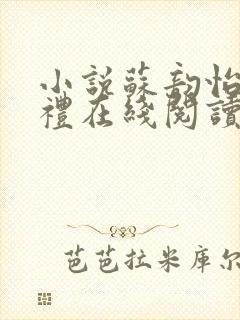 小説蘇韵怡
禮在綫閱讀
芭芭拉米庫尔